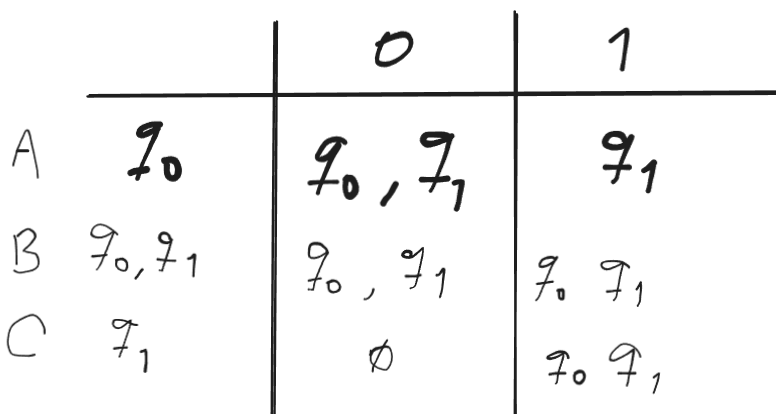 0 1
A q₀ q₀, q₁ q₁
B q₀, q₁ q₀, q₁ q₀ q₁
C q₁ ∅ q₀ q₁